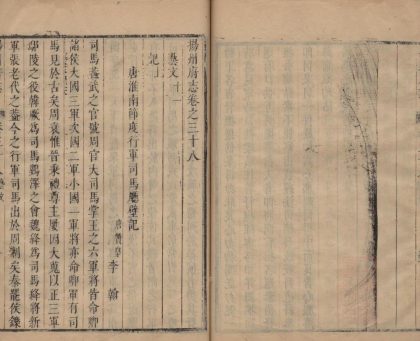 揚州府志卷之三十八
藝文十一
記二
唐淮南節度行軍司馬廳壁記
唐贊皇李翰
司馬蓋武之官號周官大司馬掌王之六軍將皆命卿
諸侯大國三軍次國二軍小國一軍將亦命卿軍有司
馬見於古矣周衰惟晉秉禮尊主屢因大蒐以正三軍
鄢陵之役韓厥為司馬雞澤之會魏絳為司馬絳將新
軍張老代之蓋今之行軍司馬出於周制矣秦罷侯